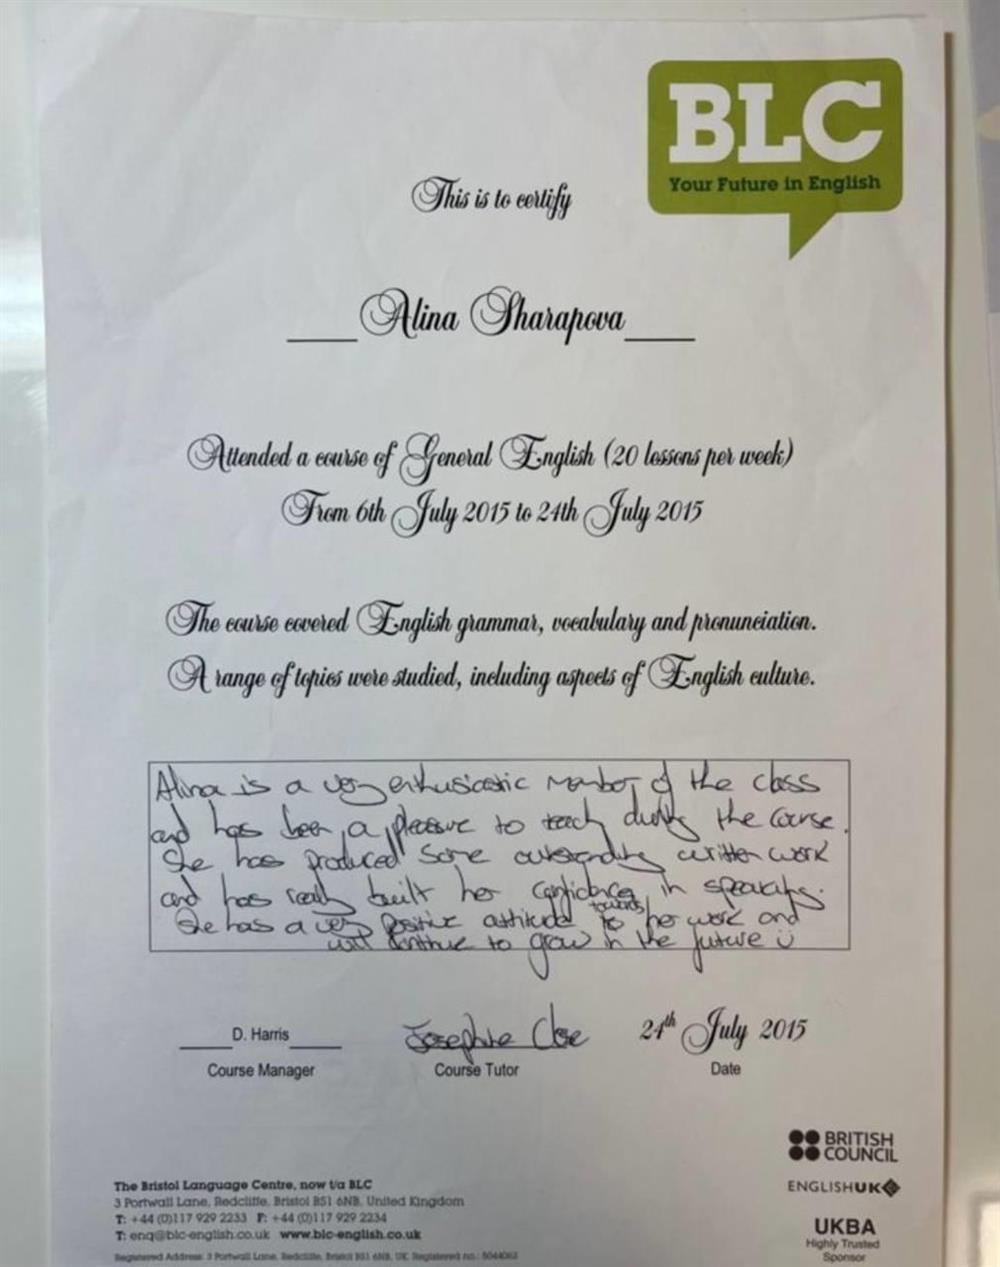 BLC
Your Future in English
This is to certify
Alina Sharapova
Attended a course of General English (20 lessons per week)
From 6th July 2015 to 24th July 2015
The course covered English grammar, vocabulary and pronunciation.
A range of topics were studied, including aspects of English culture.
Alina is a very enthusiastic member of the class
and has been a pleasure to teach during the course.
She has produced some outstanding written work
and has really built her confidence in speaking.
towards
She has a very positive attitude to her work and
will continue to grow in the future
D. Harris
Josephine Close
24th July 2015
Course Manager
Course Tutor
Date
BRITISH
COUNCIL
The Bristol Language Centre, now t/a BLC
3 Portwall Lane, Redcliffe, Bristol BS1 6NB, United Kingdom
T: +44 (0)117 929 2233 F: +44 (0)117 929 2234
T: enq@blc-english.co.uk www.blc-english.co.uk
Registered Address: 3 Portwall Lane, Redcliffe, Bristol BS1 6NB, UK. Registered no.:
ENGLISHUK
UKBA
Highly Trusted
Sponsor